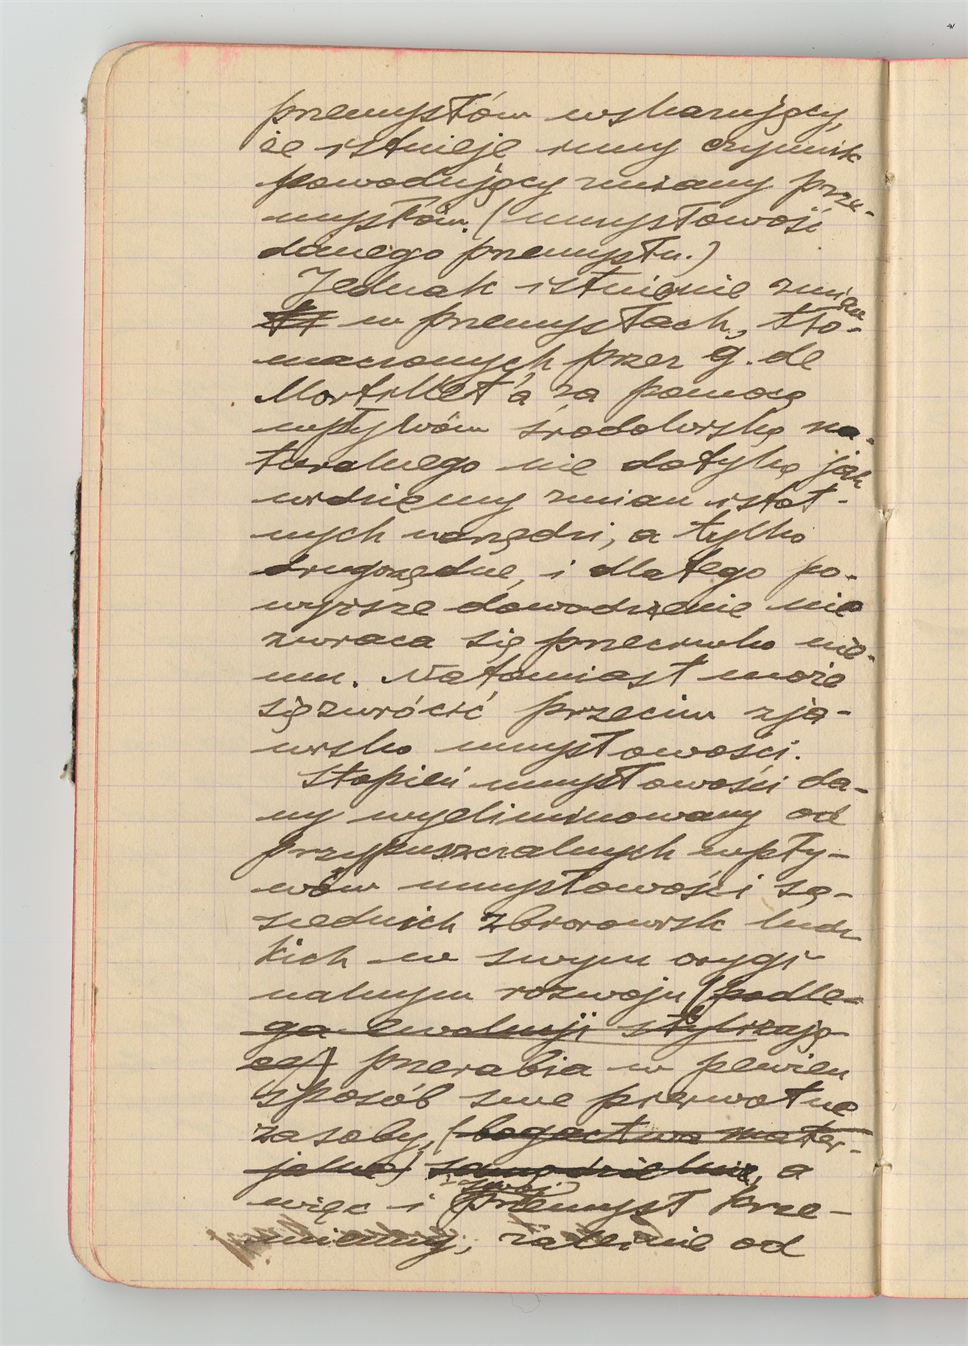 przemysłów wskazujący,
że istnieje inny czynnik
powodujący zmiany prze-
mysłów. (umysłowość
danego przemysłu.)
Jednak istnienie zmian
w przemysłach, tło-
maczonych przez G. de
Mortillet'a za pomocą
wpływów środowiska na-
turalnego nie dotyka jak
widzimy zmian istot-
nych narzędzi, a tylko
drugorzędne, i dlatego po-
wyższe dowodzenie nie
zwraca się przeciwko nie-
mu. Natomiast może
się zwrócić przeciw zja-
wisko umysłowości.
Stopień umysłowości da-
ny wyeliminowany od
przypuszczalnych wpły-
wów umysłowości są-
siednich zbiorowisk ludz
kich w swym orygi-
nalnym rozwoju (podle-
ga ewolucji stylizują-
cej) przerabia w pewien
sposób swe pierwotne
zasoby, (bogactwa mater-
jalne) samodzielnie, a
więc i swój przemysł krze-
mienny, zależnie od